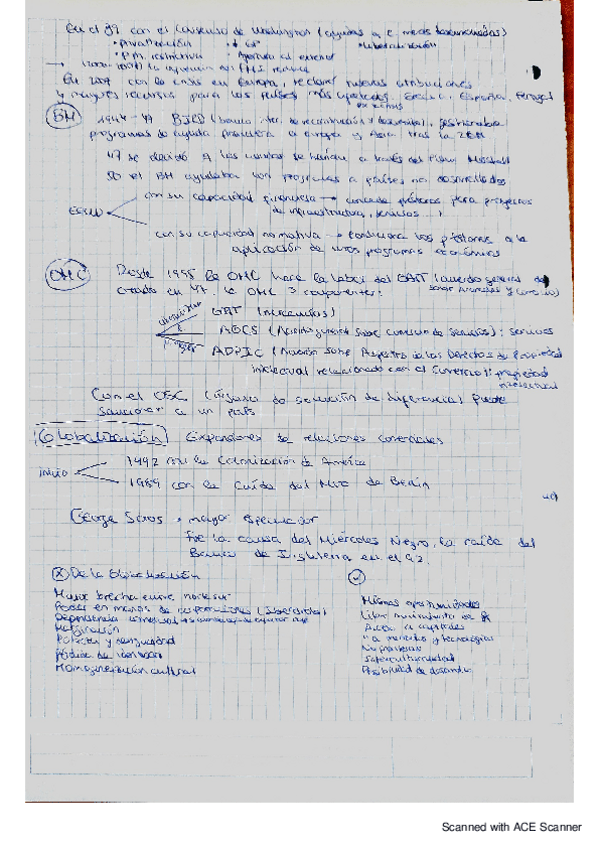 En el 89 con el Consenso de Washington (ayudas a
• privatización • liberalización
• P.M. restrictiva Apertura al exterior
En 2007 con la crisis en Europa, reclama nuevas atribuciones
y mayores recursos para los países más Grecia, España, Portugal
BM 1944-47 BIRD (banco inter. de reconstrucción y desarrollo), gestionaba
programas de ayuda financiera a Europa y Asia tras la 2GM
47 se decidió q las ayudas se harían a través del Plan Marshall
50 el BM ayudaba con programas a países no desarrollados
con su capacidad financiera → concede préstamos para proyectos
de infraestructura, servicios...
con su capacidad normativa → condiciona los préstamos a la
aplicación de unos programas económicos
OMC Desde 1995 la OMC hace la labor del GATT (acuerdo general de
sobre Aranceles y Comercio)
creado en 47. La OMC 3 componentes:
GATT (Mercancías)
AGCS (Acuerdo general sobre Comercio de Servicios): servicios
ADPIC (Acuerdo sobre Aspectos de los Derechos de Propiedad
intelectual relacionado con el Comercio): propiedad
intelectual
Con el OSC (Órgano de solución de diferencias) puede
sancionar a un país
Globalización Expansiones de relaciones comerciales
inicio
1492 con la Colonización de América
1989 con la Caída del Muro de Berlín
George Soros, mayor especulador
Fue la causa del Miércoles Negro, la caída del
Banco de Inglaterra en el 92.
De la Globalización
Mayor brecha entre norte-sur
Poder en manos de corporaciones
Dependencia
Marginación
Pobreza y desigualdad
Pérdida de identidad
Homogeneización cultural
Mismas oportunidades
Libre movimiento de
Acceso a capitales
" a mercados y tecnologías
No fronteras
Interculturalidad
Posibilidad de desarrollo
Scanned with ACE Scanner